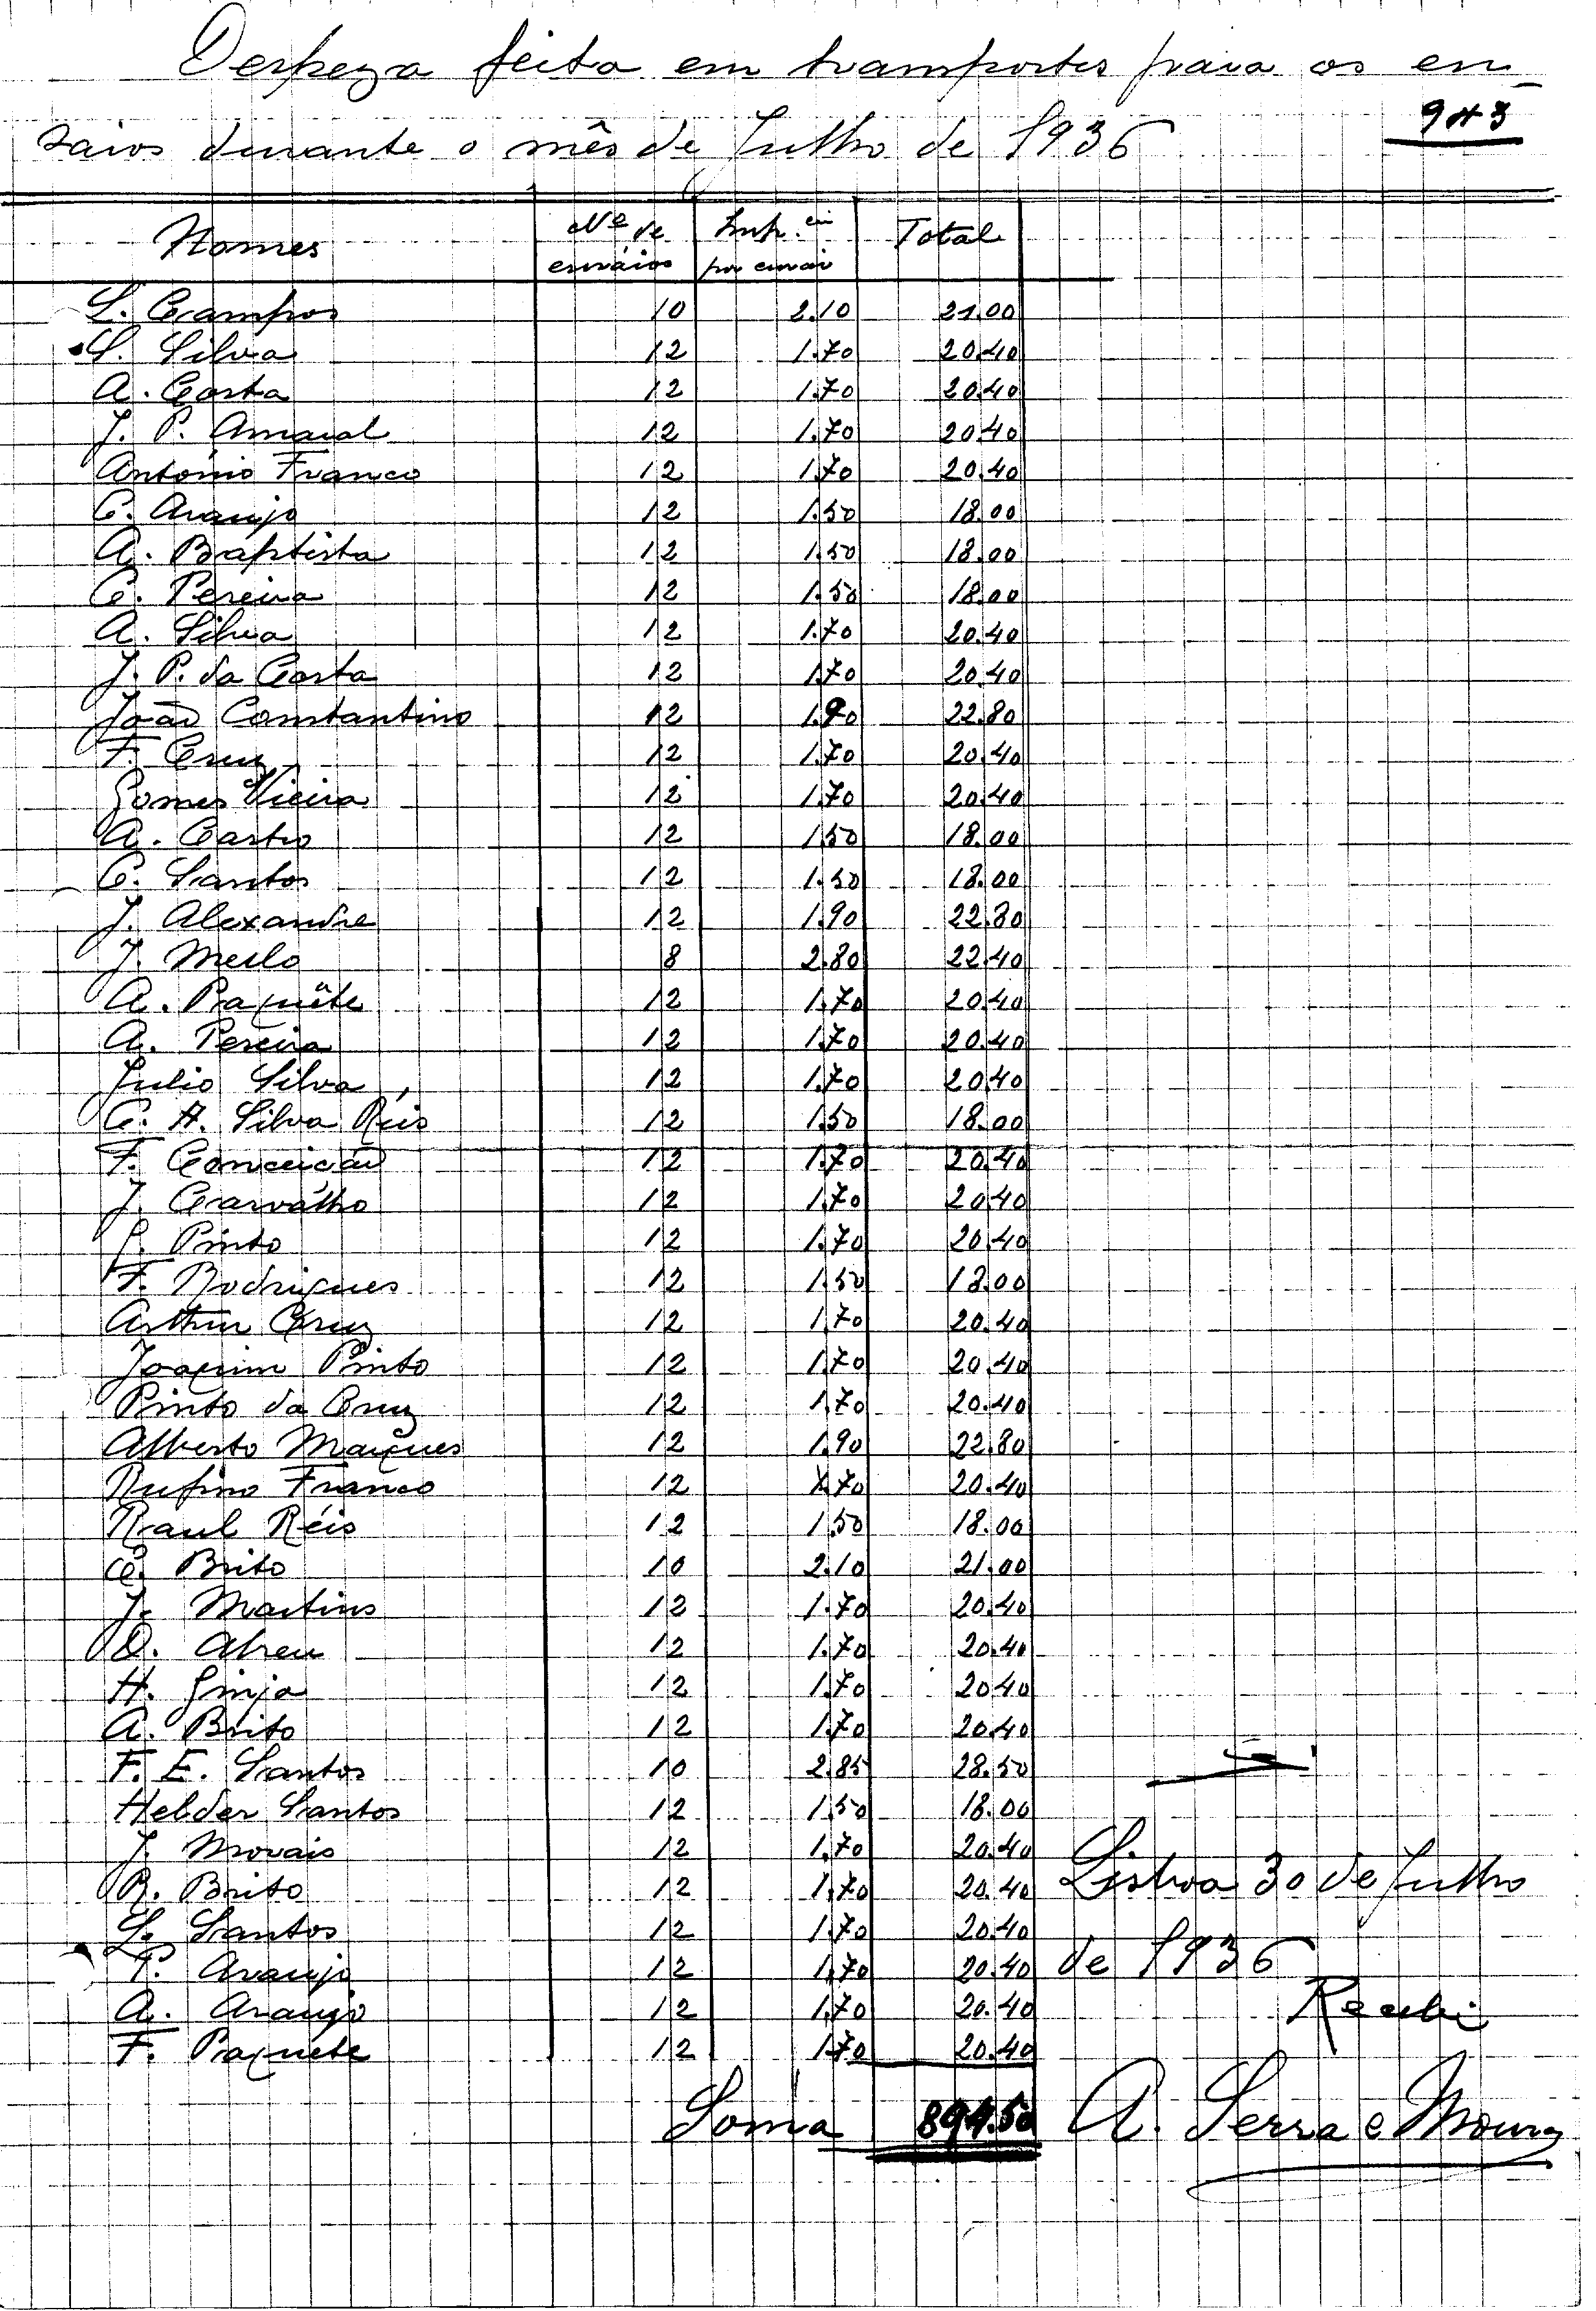 Despeza feita em transportes para os en
saios durante o mês de Julho de 1936
943
Nomes Nº de ensáios Imp. em por ensaio Total
L. Campos 10 2.10 21.00
L. Silva 12 1.70 20.40
A. Costa 12 1.70 20.40
J. P. Amaral 12 1.70 20.40
António Franco 12 1.70 20.40
C. Araujo 12 1.50 18.00
A. Baptista 12 1.50 18.00
C. Pereira 12 1.50 18.00
A. Silva 12 1.70 20.40
J. P. da Costa 12 1.70 20.40
João Constantino 12 1.90 22.80
F. Cruz 12 1.70 20.40
Gomes Vieira 12 1.70 20.40
A. Castro 12 1.50 18.00
C. Santos 12 1.50 18.00
J. Alexandre 12 1.90 22.80
J. Mello 8 2.80 22.40
A. Paquête 12 1.70 20.40
A. Pereira 12 1.70 20.40
Julio Silva 12 1.70 20.40
C. A. Silva Réis 12 1.50 18.00
F. Conceição 12 1.70 20.40
J. Carvalho 12 1.70 20.40
J. Pinto 12 1.70 20.40
F. Rodrigues 12 1.50 18.00
Arthur Cruz 12 1.70 20.40
Joaquim Pinto 12 1.70 20.40
Pinto da Cruz 12 1.70 20.40
Alberto Marques 12 1.90 22.80
Rufino Franco 12 1.70 20.40
Raul Réis 12 1.50 18.00
C. Brito 10 2.10 21.00
J. Martins 12 1.70 20.40
D. Abreu 12 1.70 20.40
H. Ginja 12 1.70 20.40
A. Brito 12 1.70 20.40
F. E. Santos 10 2.85 28.50
Helder Santos 12 1.50 18.00
J. Morais 12 1.70 20.40
R. Brito 12 1.70 20.40
L. Santos 12 1.70 20.40
P. Araujo 12 1.70 20.40
A. Araujo 12 1.70 20.40
F. Paquete 12 1.70 20.40
Soma 894.50
Lisboa 30 de Julho
de 1936
Recebi
A. Serra e Moura